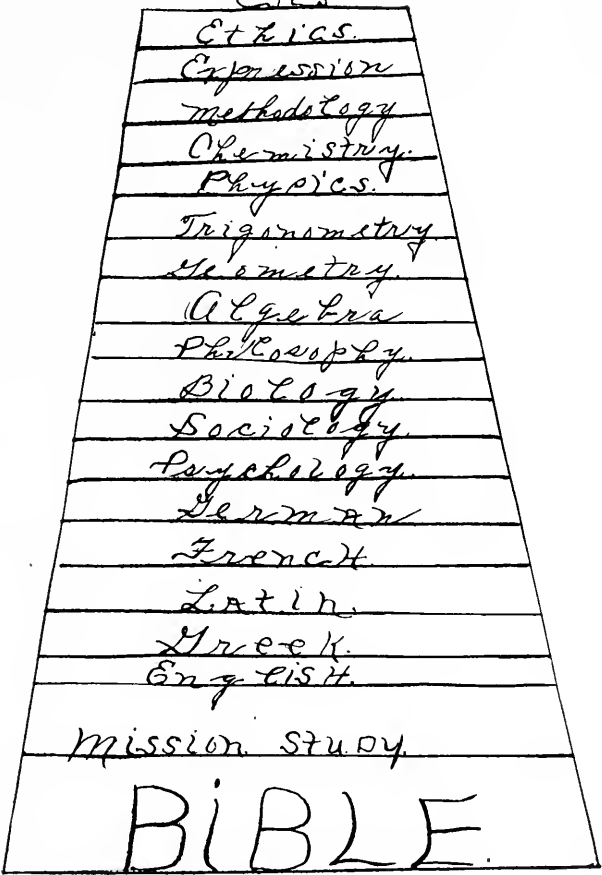 Ethics.
Expression
Methodology
Chemistry.
Physics.
Trigonometry
Geometry.
Algebra
Philosophy.
Biology.
Sociology.
Psychology.
German
French.
Latin.
Greek.
English.
Mission Study.
BiBLE.